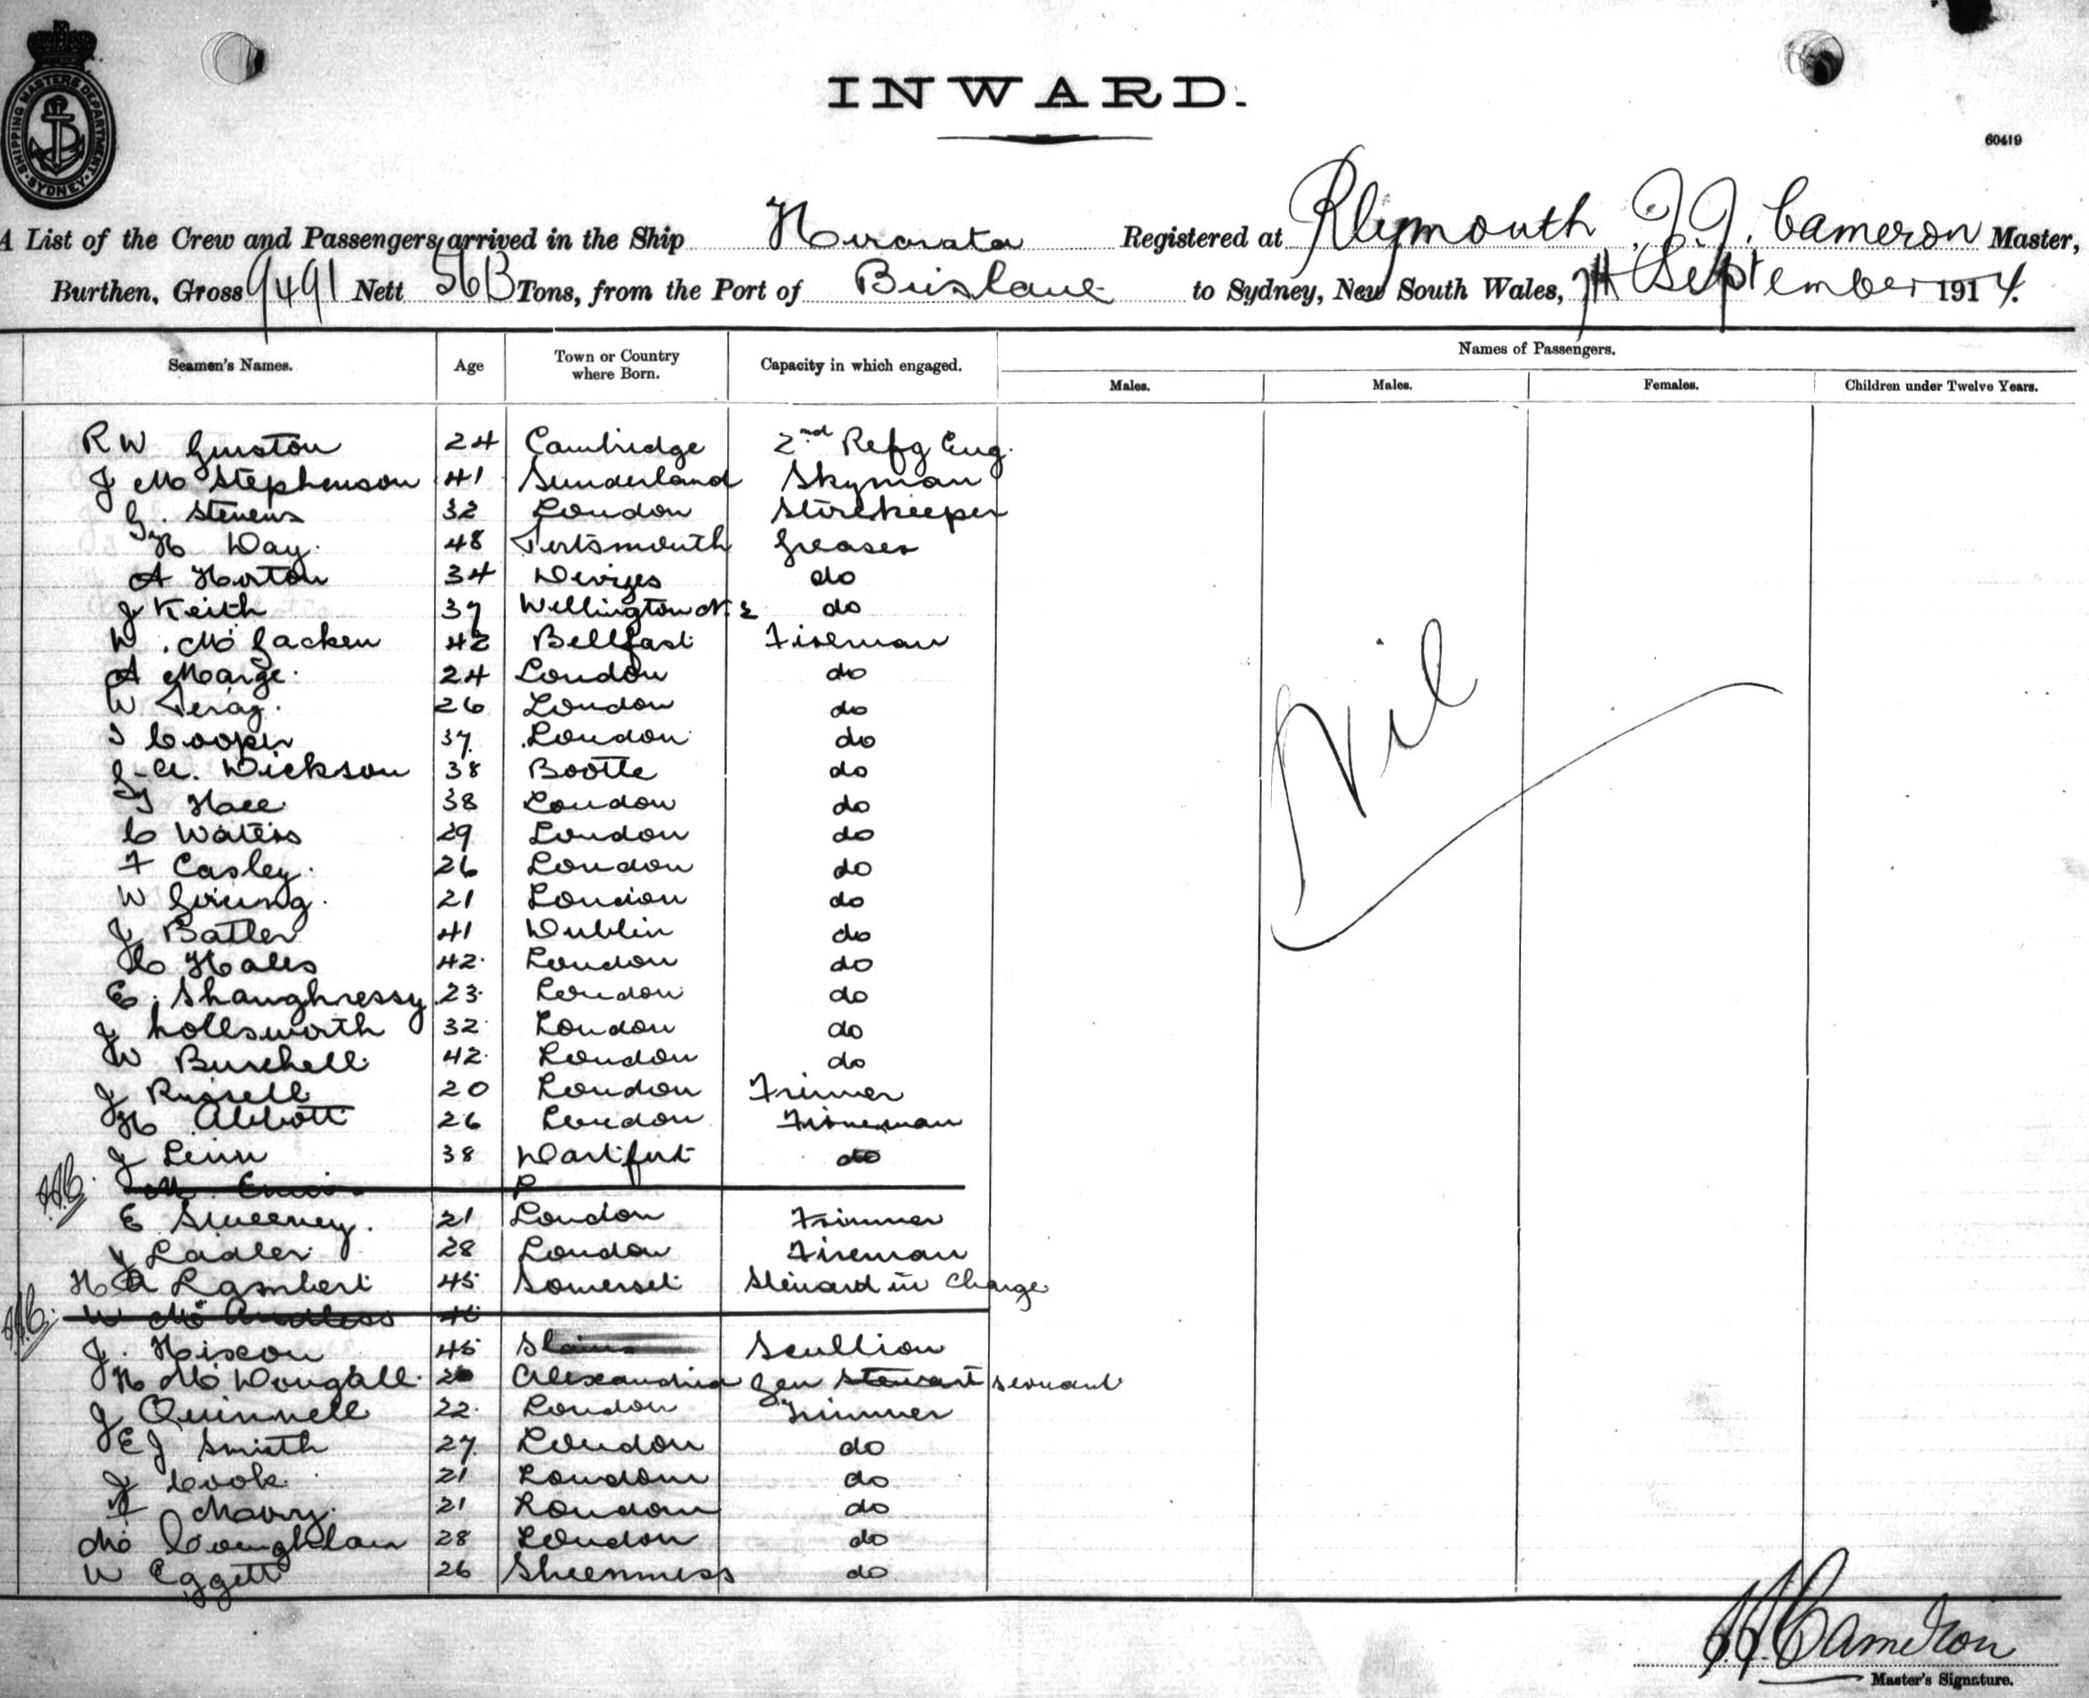 SHIPPING MASTERS DEPARTMENT. SYDNEY.
INWARD.
60419
A List of the Crew and Passengers, arrived in the Ship Hurunui Registered at Plymouth J. J. Cameron Master,
Burthen, Gross 9491 Nett 5613 Tons, from the Port of Brisbane to Sydney, New South Wales, 7th September 1914.
Seamen's Names. Age Town or Country where Born. Capacity in which engaged. Names of Passengers.
Males. Males. Females. Children under Twelve Years.
R W 24 Cambridge 2nd Refg Eng.
J Mc Stephenson 41 Sunderland
G. Stevens 32 London Storekeeper
H Day. 48 Portsmouth Greaser
A Horton 34 Devizes do
J Keith 37 Wellington N. Z do
W. Mc Gacken 42 Bellfast Fireman
A Marge. 24 London do
W 26 London do
T Cooper 37. London do
J. A. Dickson 38 Bootle do
T Hall 38 London do
C Waters 29 London do
F Casley. 26 London do
W 21 London do
J Batler 41 Dublin do
C Hales 42. London do
E. Shaughressy 23. London do
J Hollsworth 32 London do
W Burchell 42. London do
J Russell 20 London Trimer
H Abbott 26 London Fireman
J Linn 38 Dartfort do
E Sweeney. 21 London Trimmer
J Ladler 28 London Fireman
H A Lambert 45 Somerset Steward in Charge
W Mc
J. Hixon 45 Scullion
H Mc Dougall. Alexandria Gen Stewart servant
J Quinnell 22. London Trimmer
E J Smith 27. London do
J Cook 21 London do
F Mavry. 21 London do
M Coughlan 28 London do
W Eggett 26 Sheernness do
Nil
J. J. Cameron
Master's Signature.